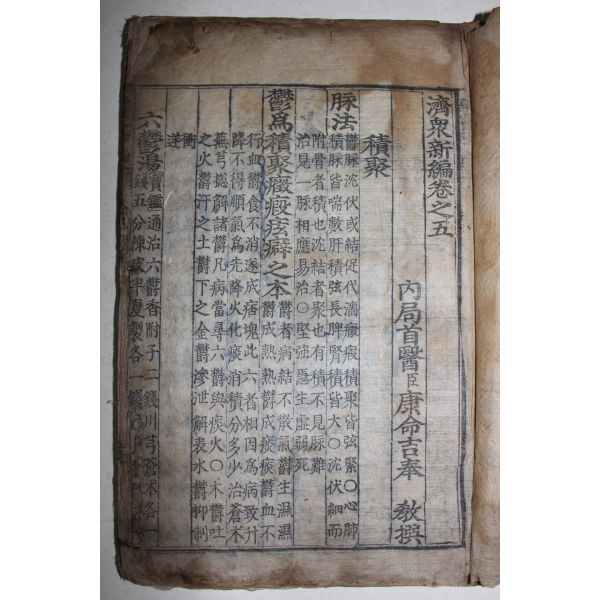 濟衆新編卷之五
內局首醫臣康命吉奉 敎撰
積聚
脉法 鬱脉沈伏或結促代濇癥瘕積聚皆弦緊○心肺
積脉皆喘數肝積弦長脾腎積皆大○沈伏細而
附骨者積也沈結者聚也有積不見脉難
治見一脉相應易治○堅強急生虛弱死
鬱爲積聚癥瘕痃癖之本 鬱者病結不散氣鬱生濕濕
鬱成熱熱鬱成痰痰鬱血不
行血鬱食不消遂成痞塊此六者相因爲病致升
降不得順氣爲先降火化痰消積分多少治蒼术
蕪芎摠解諸鬱凡病當尋六鬱與痰火○木鬱吐
之火鬱汗之土鬱下之金鬱滲泄解表水鬱抑制
衝逆
六鬱湯 寶鑑通治六鬱香附子二錢川芎蒼术各一
錢五分陳皮半夏製各一錢